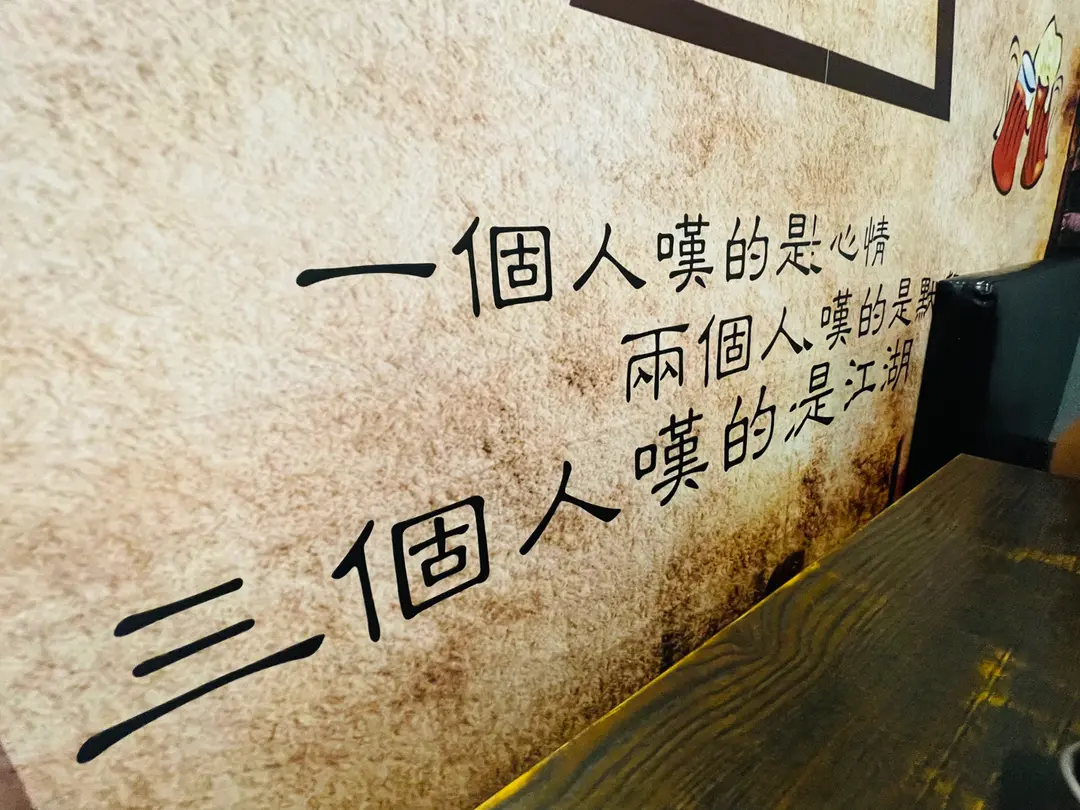 一個人嘆的是心情
兩個人嘆的是默
三個人嘆的是江湖